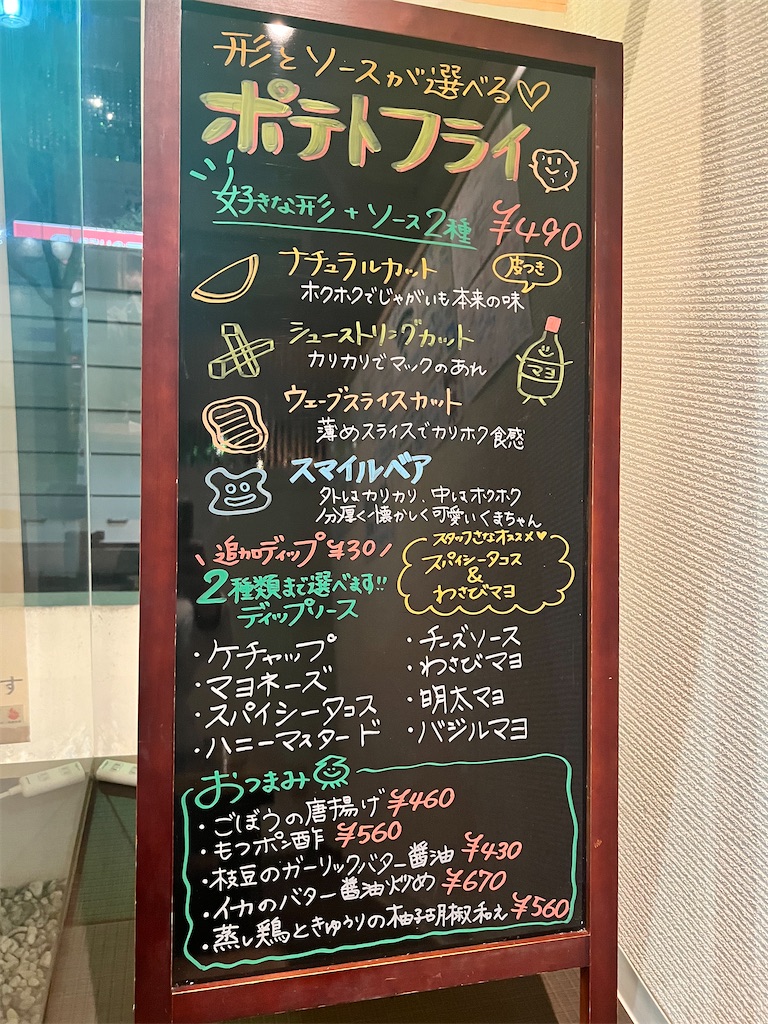 形とソースが選べる♡
ポテトフライ
好きな形+ソース2種 ¥490
ナチュラルカット 皮つき
ホクホクでじゃがいも本来の味
シューストリングカット
カリカリでマックのあれ
マヨ
ウェーブスライスカット
薄めスライスでカリホク食感
スマイルベア
外はカリカリ、中はホクホク
分厚く懐かしく可愛いくまちゃん
追加ディップ ¥30
2種類まで選べます!!
ディップソース
スタッフさなオススメ♥
スパイシータコス
&
わさびマヨ
・ケチャップ
・マヨネーズ
・スパイシータコス
・ハニーマスタード
・チーズソース
・わさびマヨ
・明太マヨ
・バジルマヨ
おつまみ
・ごぼうの唐揚げ ¥460
・もつポン酢 ¥560
・枝豆のガーリックバター醤油 ¥430
・イカのバター醤油炒め ¥670
・蒸し鶏ときゅうりの柚子胡椒和え ¥560
す